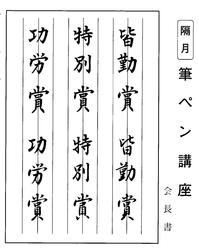 隔月 筆ペン講座
会長書
皆勤賞 皆勤賞
特別賞 特別賞
功労賞 功労賞